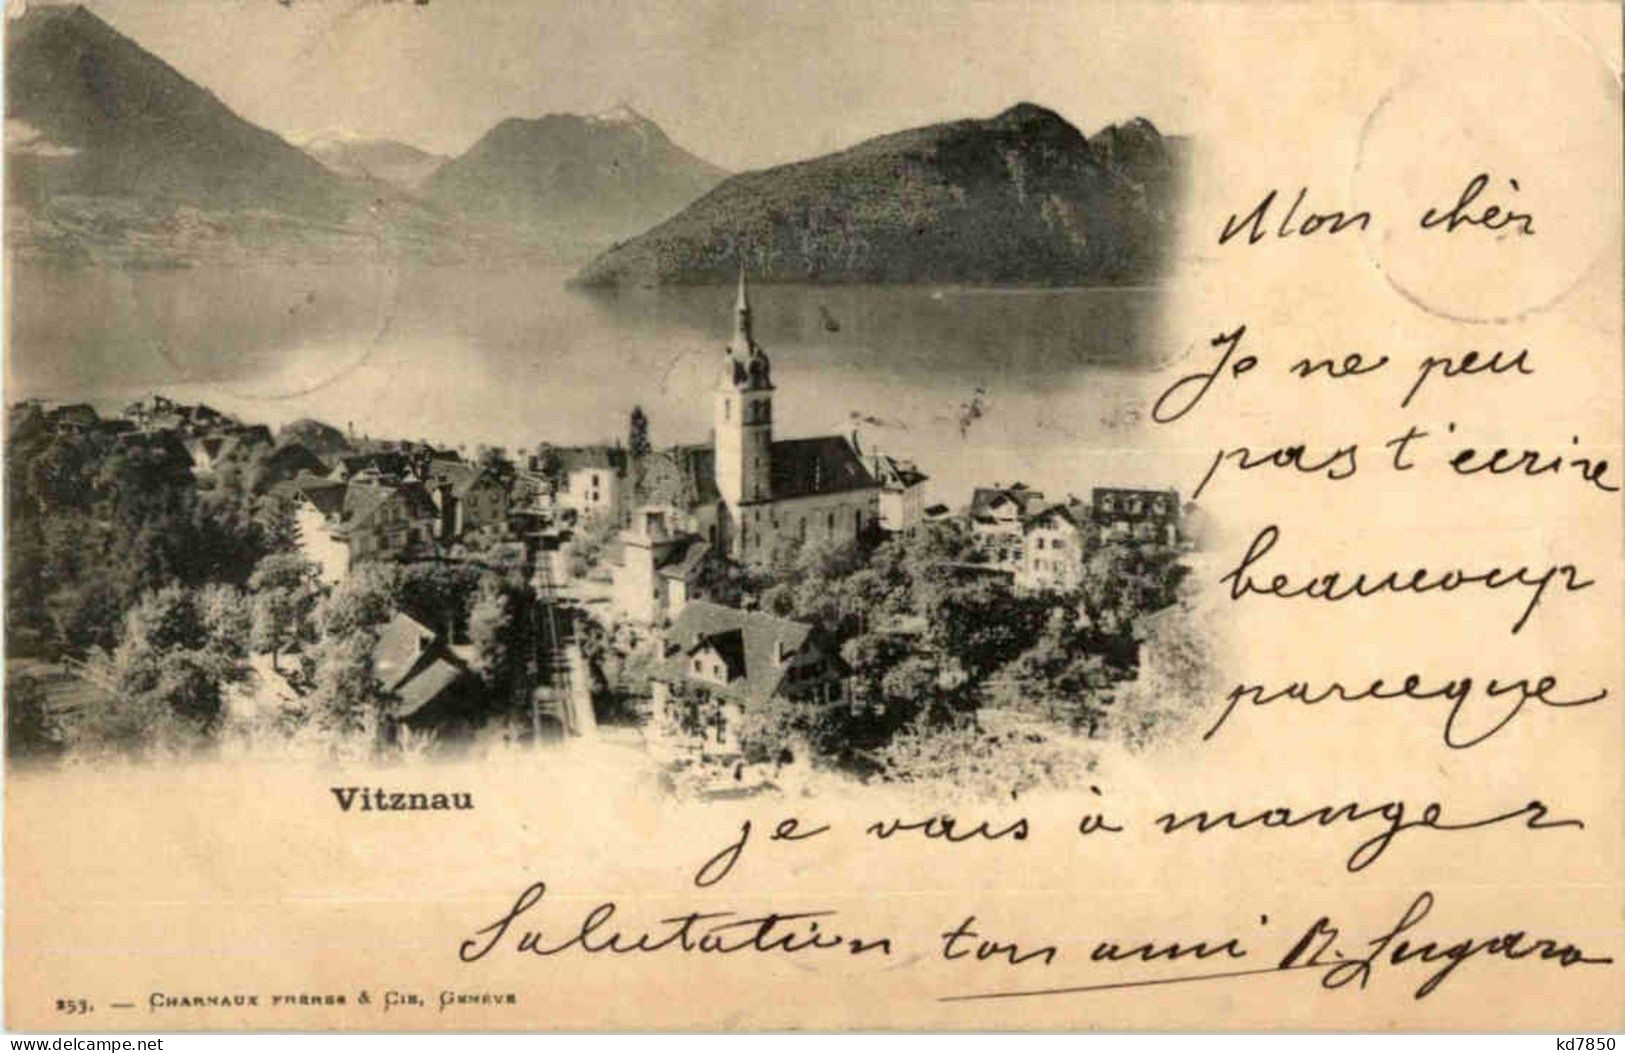 Mon chèr
Je ne peu
pas t'ecrire
beaucoup
parceque
je vais à manger
Salutation ton ami R. Lugaro
Vitznau
253. — CHARNAUX FRÈRES & CIE, GENÈVE
delcampe.net
kd7850